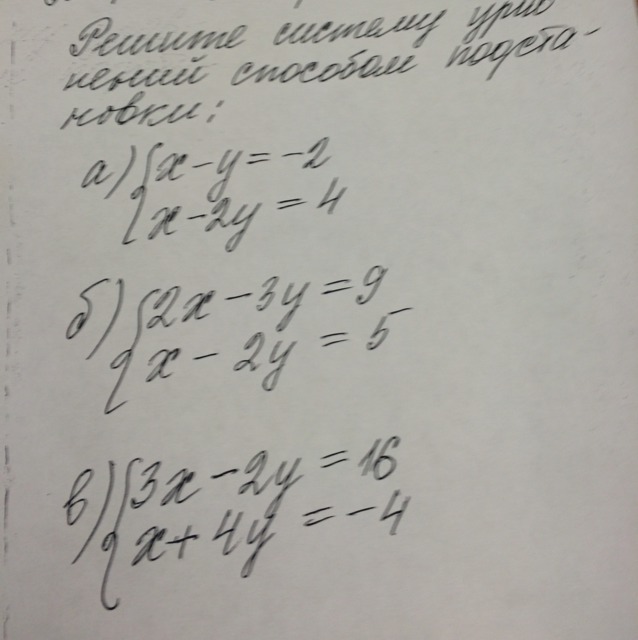 Решите систему урав
нений способом подста-
новки:
а) { x - y = -2
x - 2y = 4
б) { 2x - 3y = 9
x - 2y = 5
в) { 3x - 2y = 16
x + 4y = -4